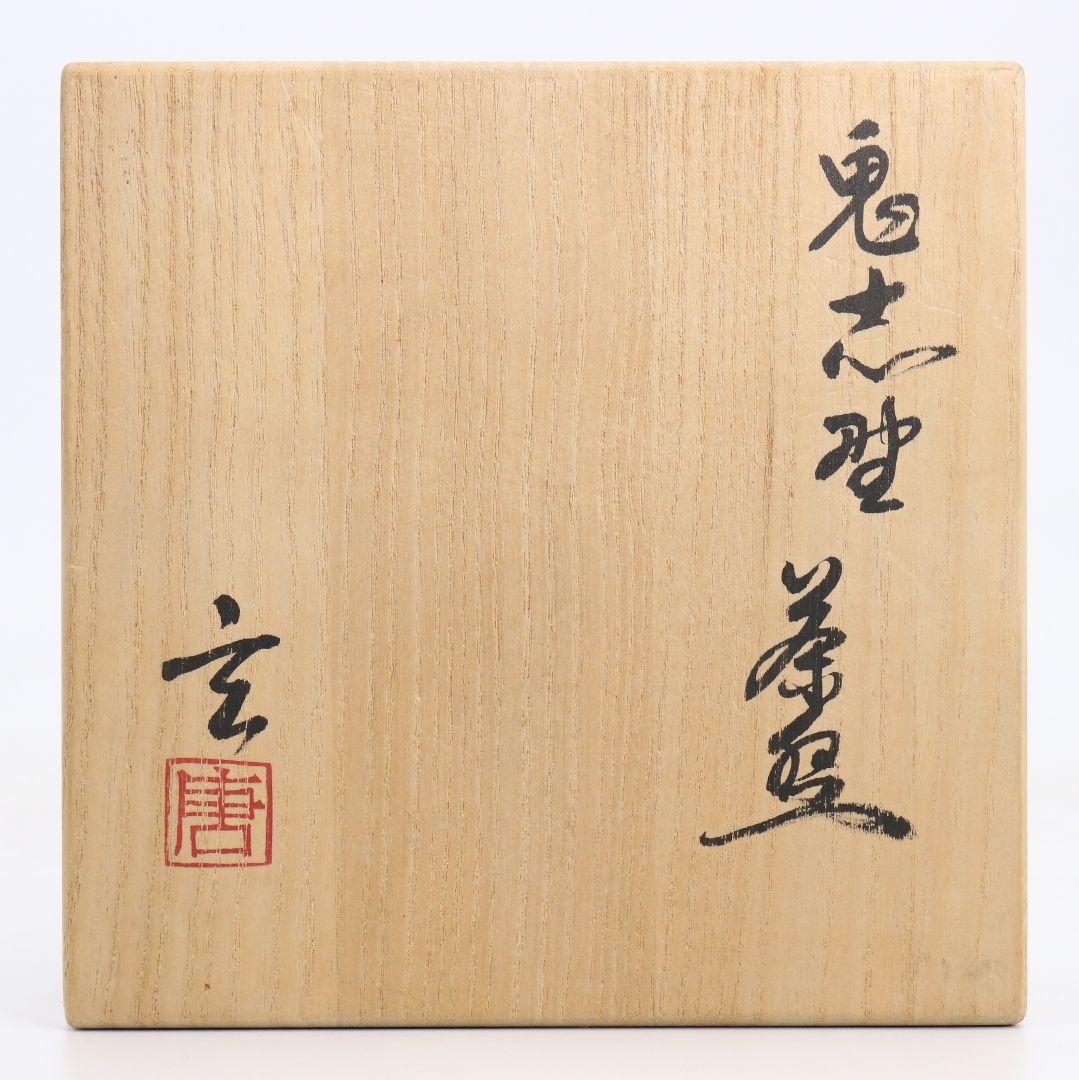 鬼志野
茶盌
玄
唐